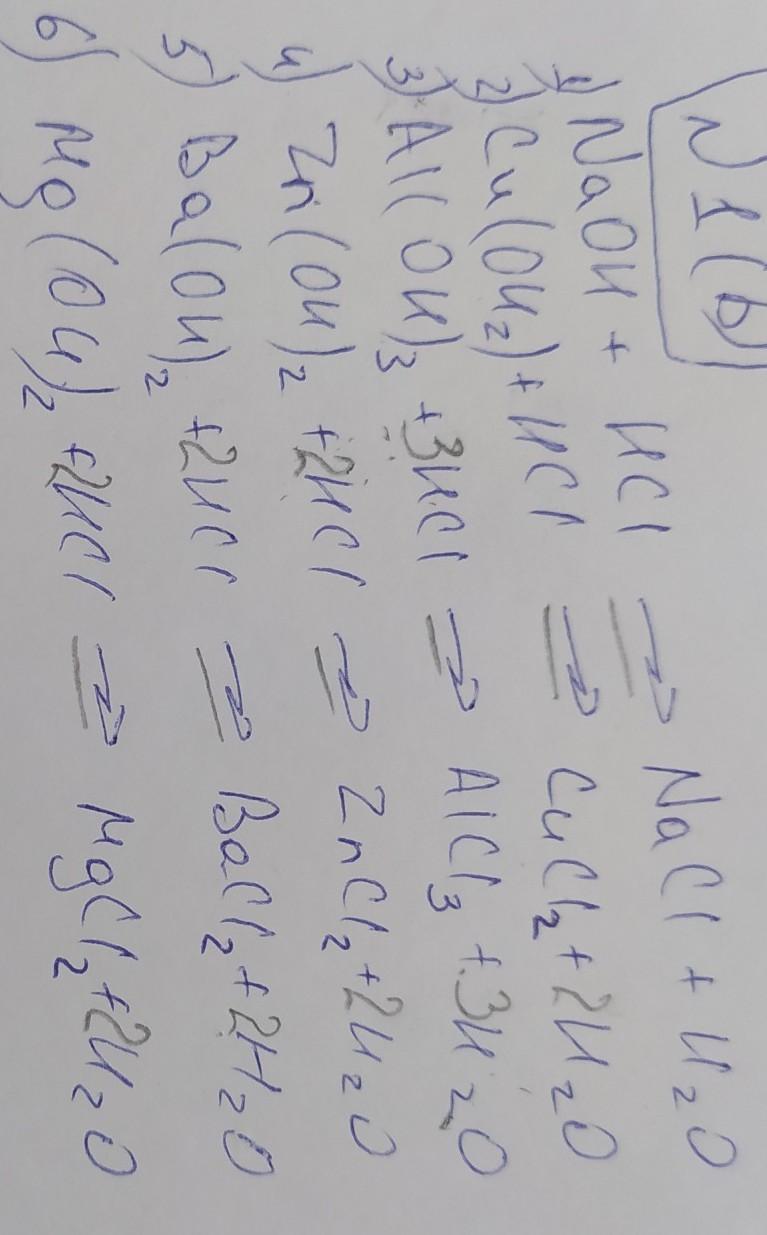 N1(b)
1) NaOH + HCl → NaCl + H₂O
2) Cu(OH₂) + HCl → CuCl₂ + 2H₂O
3) Al(OH)₃ + 3HCl → AlCl₃ + 3H₂O
4) Zn(OH)₂ + 2HCl → ZnCl₂ + 2H₂O
5) Ba(OH)₂ + 2HCl → BaCl₂ + 2H₂O
6) Mg(OH)₂ + 2HCl → MgCl₂ + 2H₂O